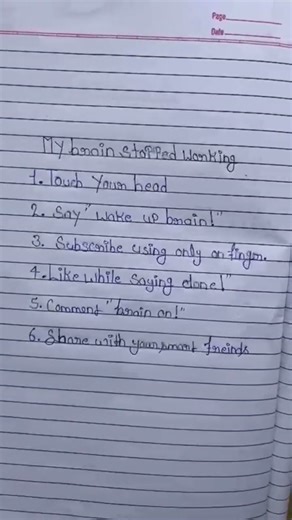 Page
Date
My brain stopped working
1. Touch your head
2. Say "wake up brain!"
3. Subscribe using only on finger.
4. Like while saying done!"
5. Comment "brain on!"
6. Share with your smart freinds